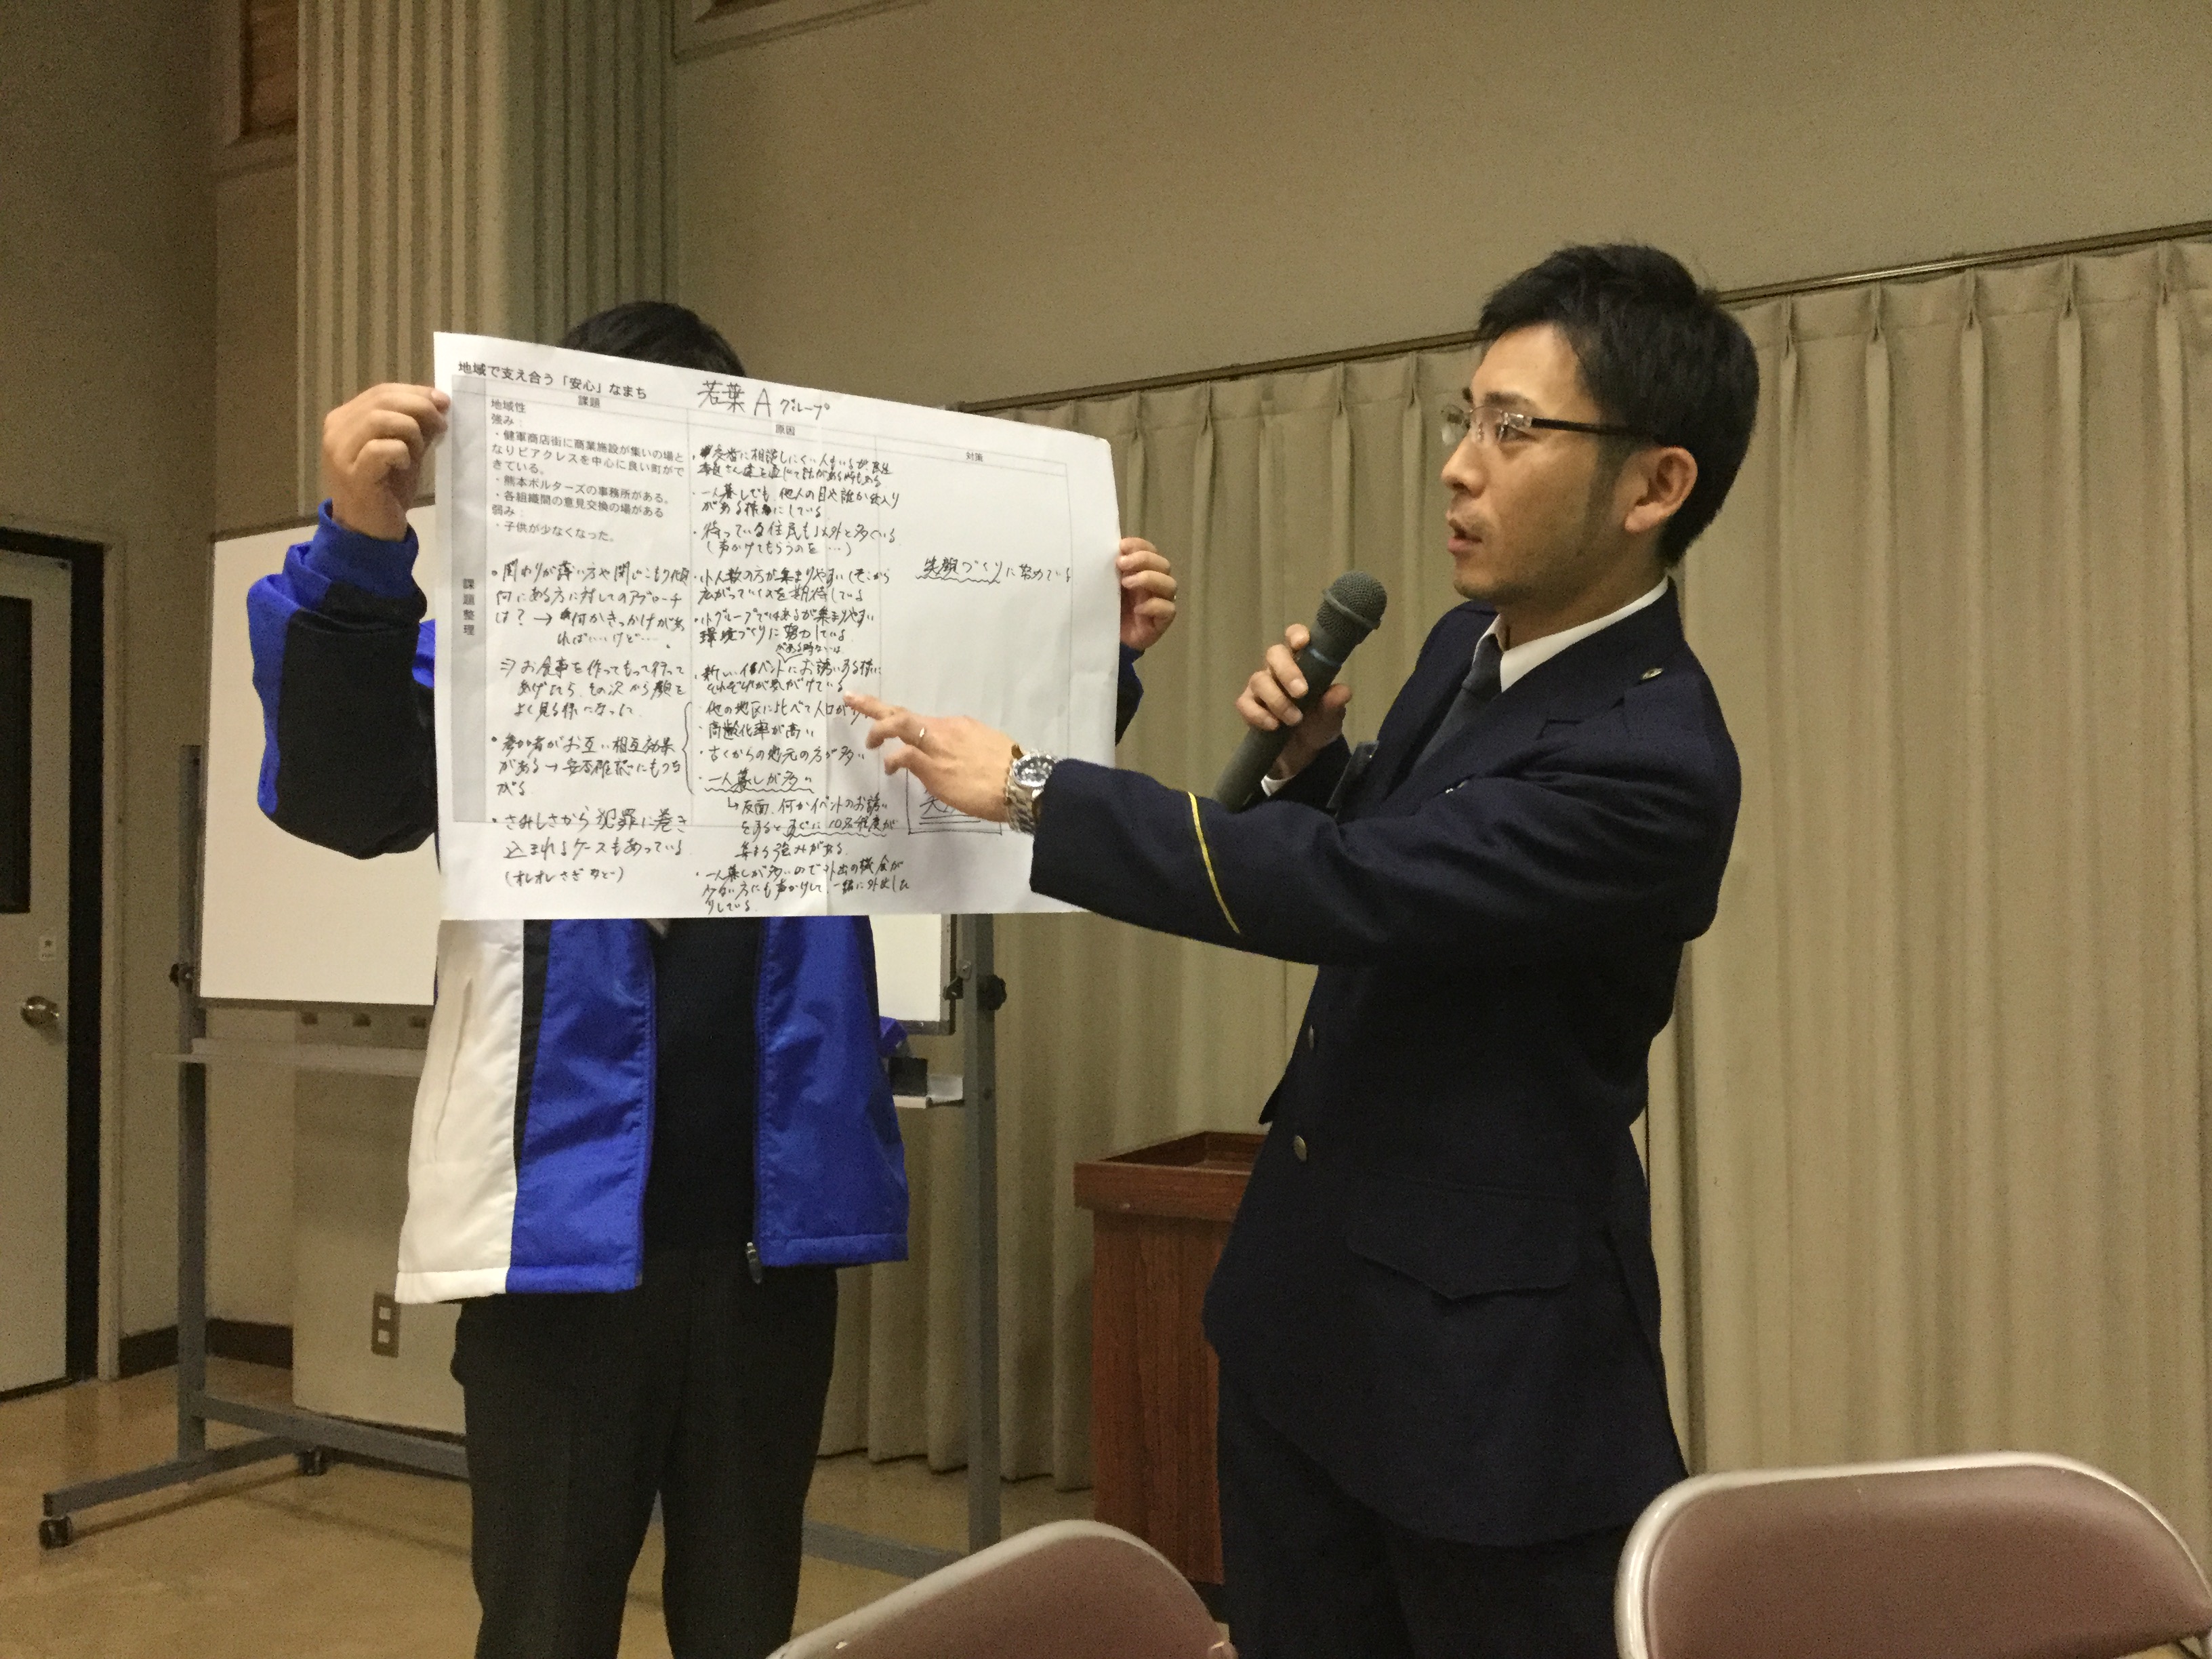 地域で支え合う「安心」なまち
若葉 A グループ
課題
原因
対策
課題整理
地域性
強み：
・健軍商店街に商業施設が集いの場と
なりピアクレスを中心に良い町がで
きている。
・熊本ボルターズの事務所がある。
・各組織間の意見交換の場がある
弱み：
・子供が少なくなった。
・関わりが薄い方や閉じこもり傾
向にある方に対してのアプローチ
は？→何かきっかけがあ
ればいいけど…。
⇒お食事を作ってもって行って
あげたら、その次から顔を
よく見る様になった
・参加者がお互い相互効果
がある→安否確認にもつな
がる
・さみしさから犯罪に巻き
込まれるケースもあっている
(オレオレさぎなど)
・交番に相談しにくい人もいるが、民生
委員さん達を通じて話がある時もある
・一人暮しでも、他人の目や誰か出入り
がある様にしている
・待っている住民も以外と多くいる
(声かけてもらうのを…)
・小人数の方が集まりやすい(そこから
広がっていくのを期待している
・小グループではあるが集まりやすい
環境づくりに努力している
がある時ないは
・新しいイベントにお誘いある様に
それぞれが気がけている
・他の地区に比べて人口が
・高齢化率が高い
・古くからの地元の方が多い
・一人暮しが多い
↳反面、何かイベントのお誘い
をするとすぐに10名程度が
集まる強みがある
・一人暮しが多いので外出の機会が
少ない方にも声かけして、一緒に外出した
りしている
笑顔づくりに努めている